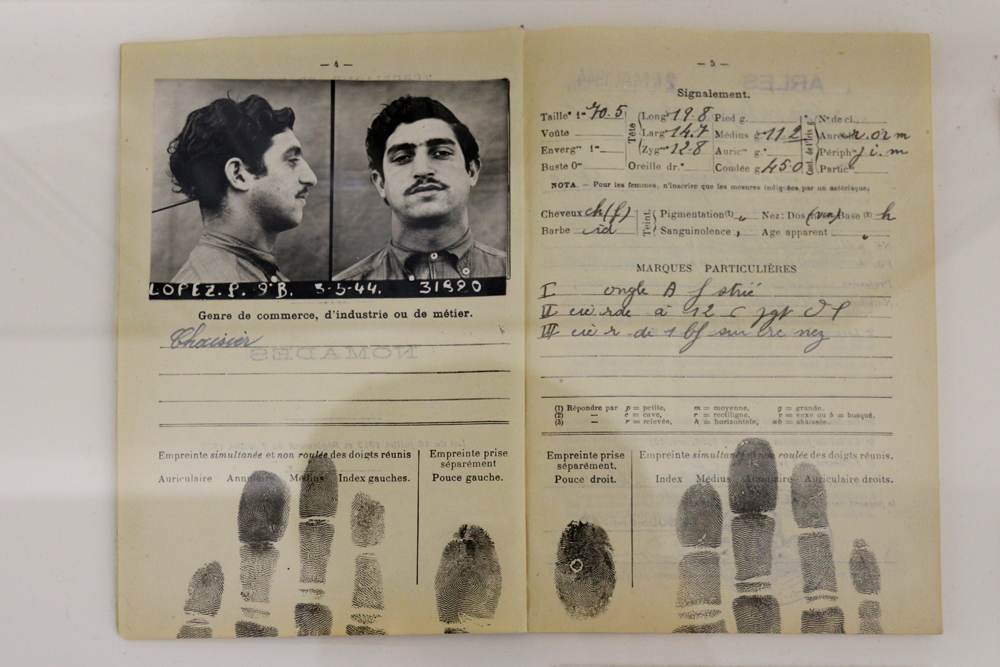 — 4 —
LOPEZ. J. 9 B. 3-5-44. 31990
Genre de commerce, d'industrie ou de métier.
Chaisier
NOMADES
Empreinte simultanée et non roulée des doigts réunis
Auriculaire Annulaire Médius Index gauches.
Empreinte prise
séparément
Pouce gauche.
— 5 —
ARLES 24 MAI 1944
Signalement.
Taille* 1m 70.5
Voûte
Envergre 1m
Buste 0m
Tête
Longr 19.8
Largr 14.7
Zygre 12.8
Oreille dr.*
Pied g.
Médius g. 11.2
Auricre g.*
Coudée g. 45.0
Coul. de l'iris g.
No de cl.
Périph j. i. m
Partic
NOTA. — Pour les femmes, n'inscrire que les mesures indiquées par un astérisque.
Cheveux ch(f)
Barbe id
Teint.
Pigmentation (1) "
Sanguinolence "
Nez: Dos (vex) Base (3) h
Age apparent "
MARQUES PARTICULIÈRES
I ongle A g strié
II
III
(1) Répondre par p = petite, m = moyenne, g = grande.
(2) — c = cave, r = rectiligne, v = vexe ou b = busqué,
(3) — r = relevée, h = horizontale, ab = abaissée.
Empreinte prise
séparément.
Pouce droit.
Empreinte simultanée et non roulée des doigts réunis.
Index Médius Annulaire Auriculaire droits.